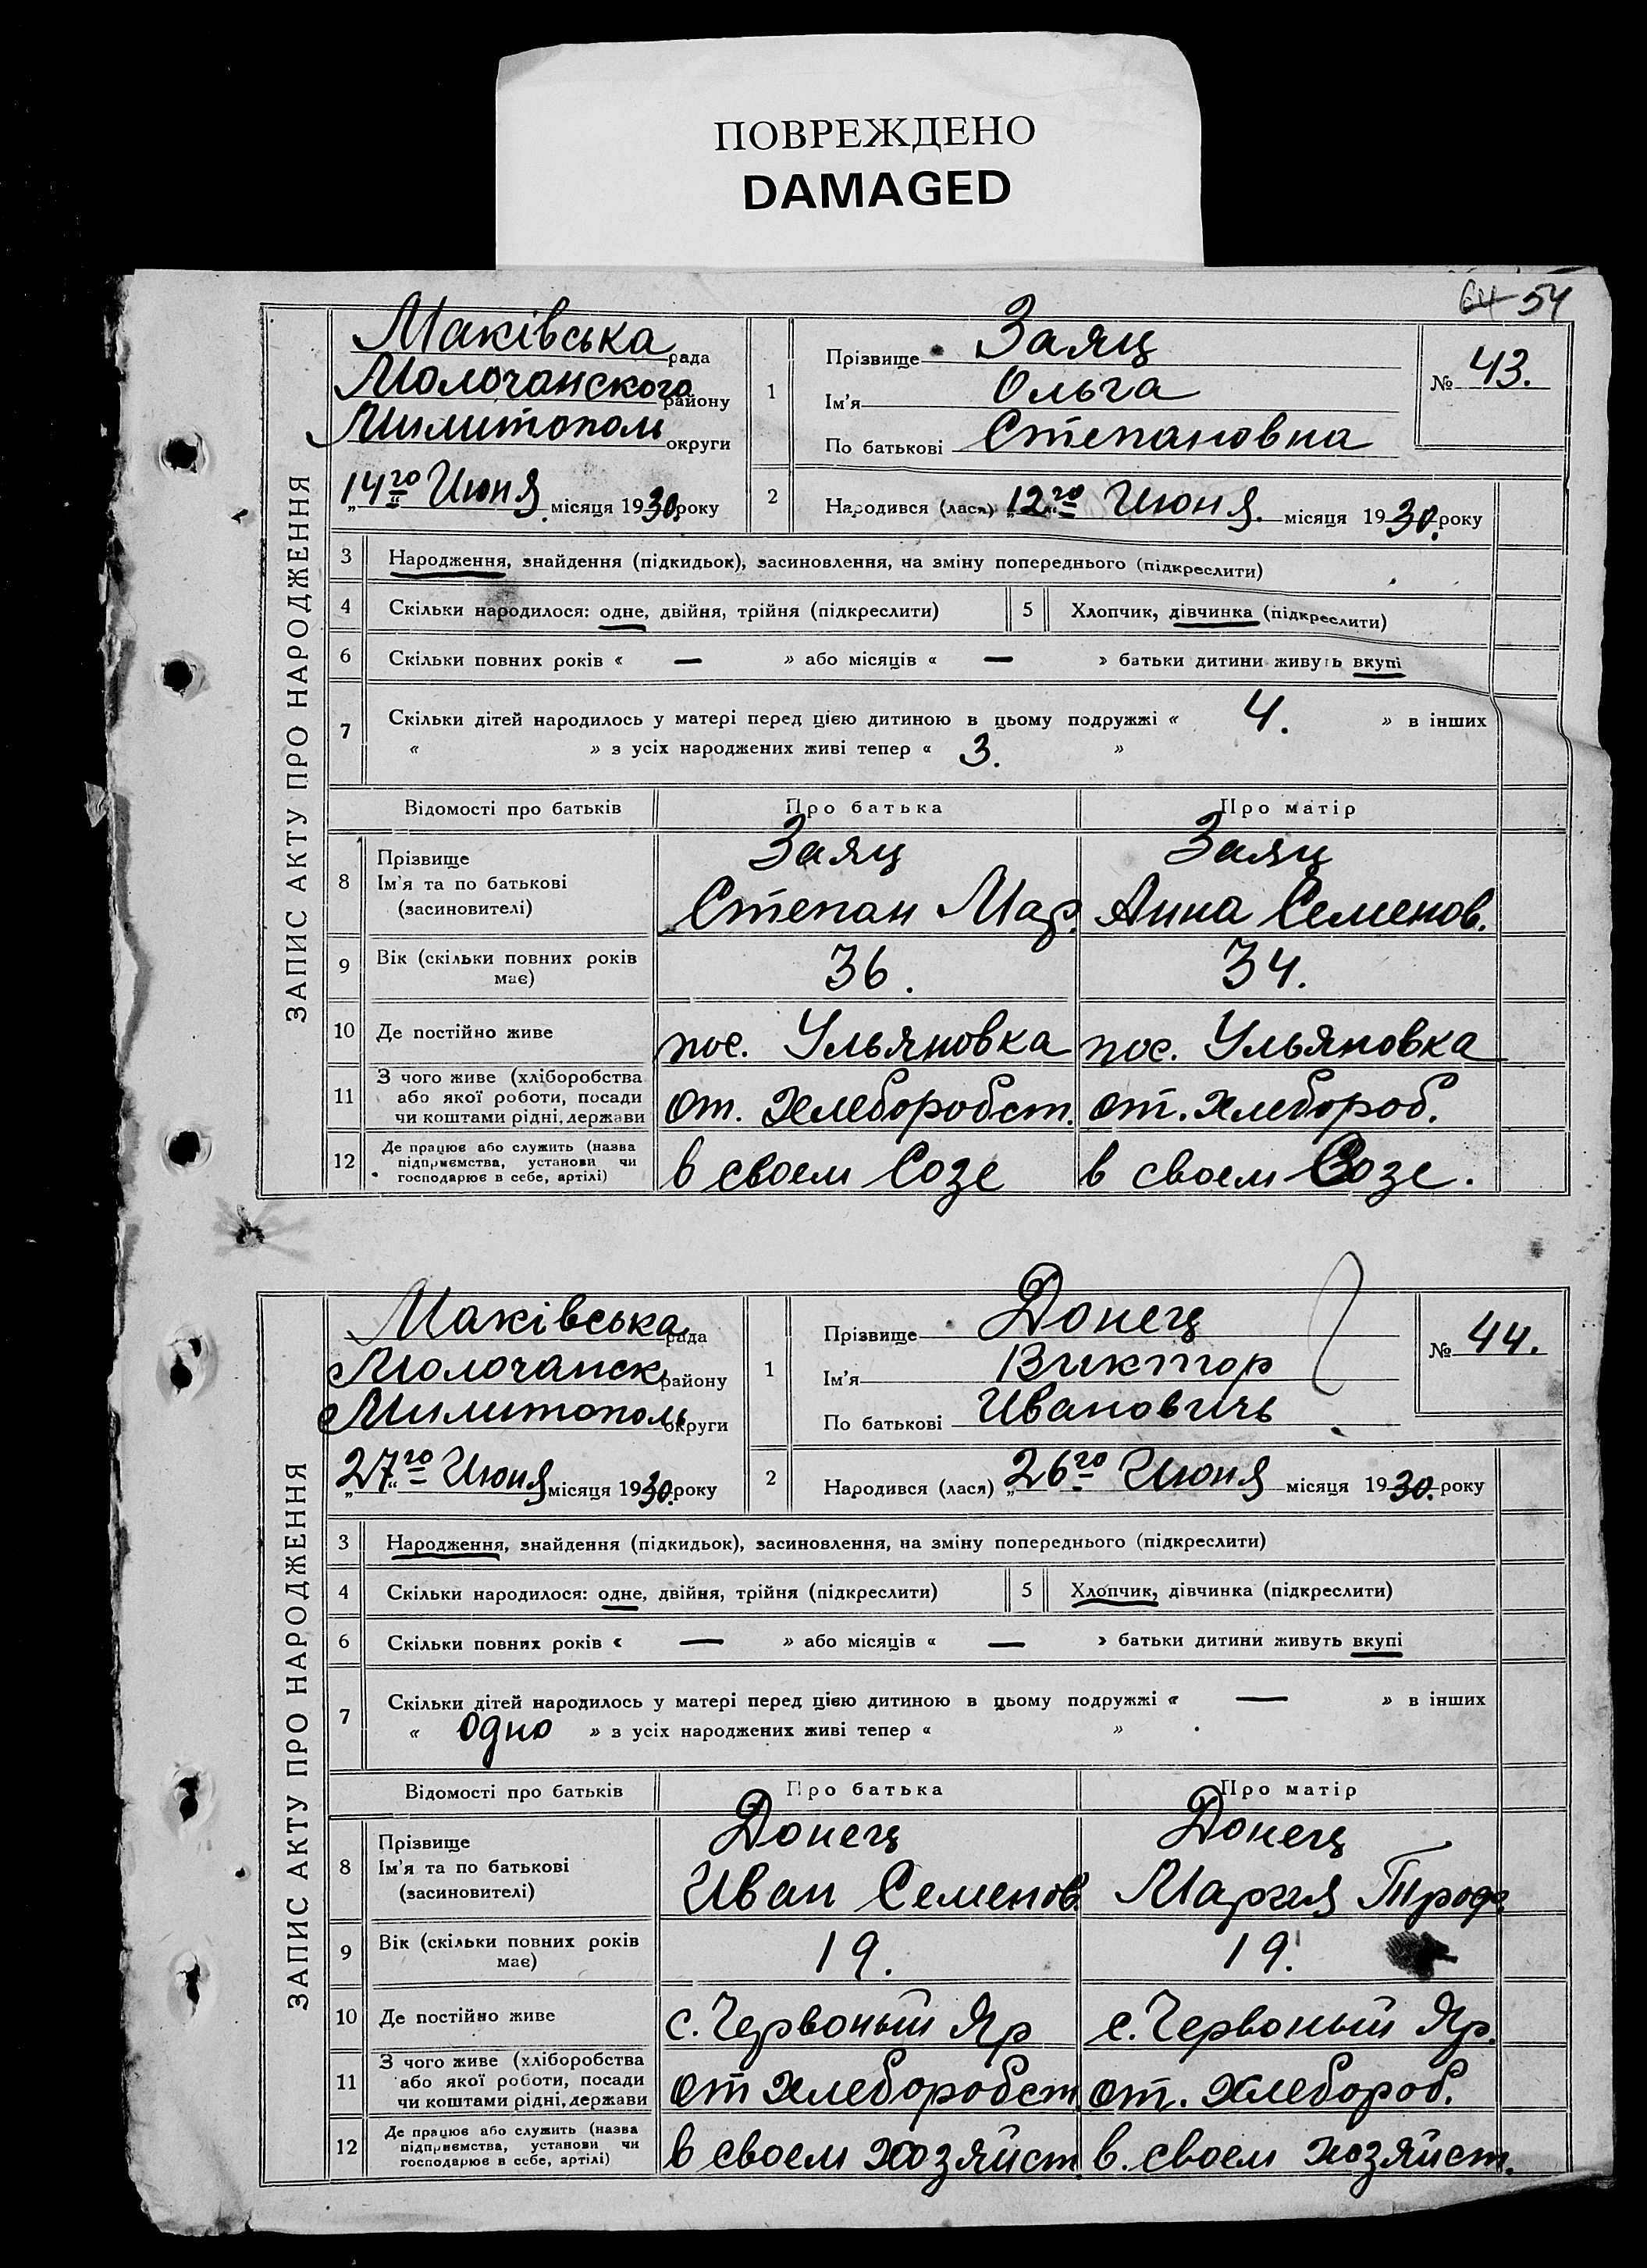 ПОВРЕЖДЕНО
DAMAGED
64 54
ЗАПИС АКТУ ПРО НАРОДЖЕННЯ
Маківська рада
Молочанского району
Милитополь округи
„14го“ Июня місяця 1930. року
1 Прізвище Заяц
Ім'я Ольга
По батькові Степановна
№ 43.
2 Народився (лася) „12го“ Июня. місяця 1930. року
3 Народження, знайдення (підкидьок), засиновлення, на зміну попереднього (підкреслити)
4 Скільки народилося: одне, двійня, трійня (підкреслити) 5 Хлопчик, дівчинка (підкреслити)
6 Скільки повних років « — » або місяців « — » батьки дитини живуть вкупі
7 Скільки дітей народилось у матері перед цією дитиною в цьому подружжі « 4. » в інших
« » з усіх народжених живі тепер « 3. »
Відомості про батьків Про батька Про матір
8 Прізвище Заяц Заяц
Ім'я та по батькові
(засиновителі) Степан Мар. Анна Семенов.
9 Вік (скільки повних років
має) 36. 34.
10 Де постійно живе пос. Ульяновка пос. Ульяновка
11 З чого живе (хліборобства
або якої роботи, посади
чи коштами рідні, держави от. хлеборобст. от. хлебороб.
12 Де працює або служить (назва
підприємства, установи чи
господарює в себе, артілі) в своем Созе в своем Созе.
ЗАПИС АКТУ ПРО НАРОДЖЕННЯ
Маківська рада
Молочанск району
Милитополь округи
„27го“ Июня місяця 1930. року
1 Прізвище Донец
Ім'я Виктор
По батькові Ивановичь
№ 44.
2 Народився (лася) „26го Июня місяця 1930. року
3 Народження, знайдення (підкидьок), засиновлення, на зміну попереднього (підкреслити)
4 Скільки народилося: одне, двійня, трійня (підкреслити) 5 Хлопчик, дівчинка (підкреслити)
6 Скільки повних років « — » або місяців « — » батьки дитини живуть вкупі
7 Скільки дітей народилось у матері перед цією дитиною в цьому подружжі « — » в інших
« одно » з усіх народжених живі тепер « »
Відомості про батьків Про батька Про матір
8 Прізвище Донец Донец
Ім'я та по батькові
(засиновителі) Иван Семенов. Мария Троф.
9 Вік (скільки повних років
має) 19. 19.
10 Де постійно живе с. Червоный Яр с. Червоный Яр.
11 З чого живе (хліборобства
або якої роботи, посади
чи коштами рідні, держави от хлеборобст. от. хлебороб.
12 Де працює або служить (назва
підприємства, установи чи
господарює в себе, артілі) в своем хозяйст. в. своем хозяйст.